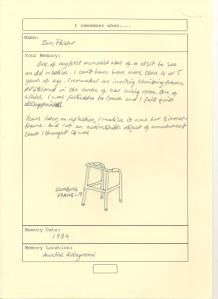 I remember when....
Name:
Ian
Your Memory:
One of my first memories was of a visit to see
an old relative. I can't have been more than 4 or 5
years of age. I remember an inviting climbing frame
positioned in the centre of her living room. One of
which I was forbidden to touch and I felt quite
disappointed.
Years later, on reflection, I realise it was her zimmer
frame. And not an object of amusement
that I thought it was
CLIMBING
FRAME - ?
Memory Date:
1984
Memory Location:
Aunties